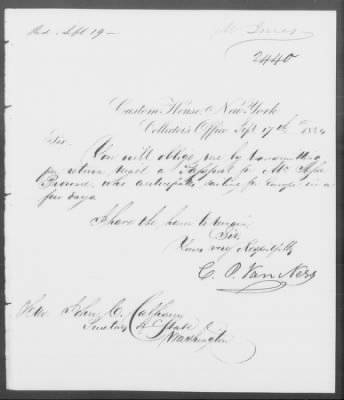 Recd. Sept 19 —
2440
Custom House, New York
Collector's Office Sept 17th 1844
Sir.
You will oblige me by transmitting
by return mail a Passport for Mr
Browne, who anticipates sailing for Europe in a
few days
I have the honor to remain
Sir
Yours very Respectfully
C. P. Van Ness
Hon. John C. Calhoun
Secretary of State
Washington